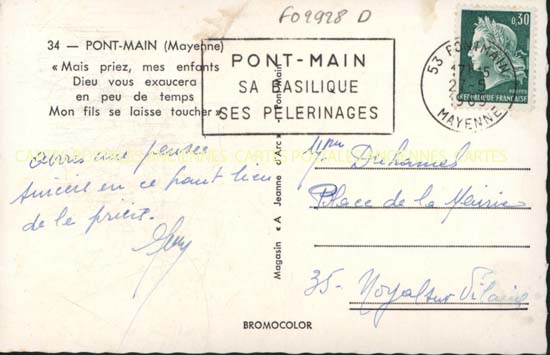 FO9928 D
34 — PONT-MAIN (Mayenne)
« Mais priez, mes enfants
Dieu vous exaucera
en peu de temps
Mon fils se laisse toucher »
PONT-MAIN
SA BASILIQUE
SES PELERINAGES
0,30
REPUBLIQUE FRANÇAISE
53
MAYENNE
CARTES POSTALES ANCIENNES CARTES
une pensée
sincère en ce haut lieu
de la prière.
Magasin « A Jeanne d'Arc » Pont-Main
Duhamel
Place de la Mairie
35- Noyal sur Vilaine
BROMOCOLOR